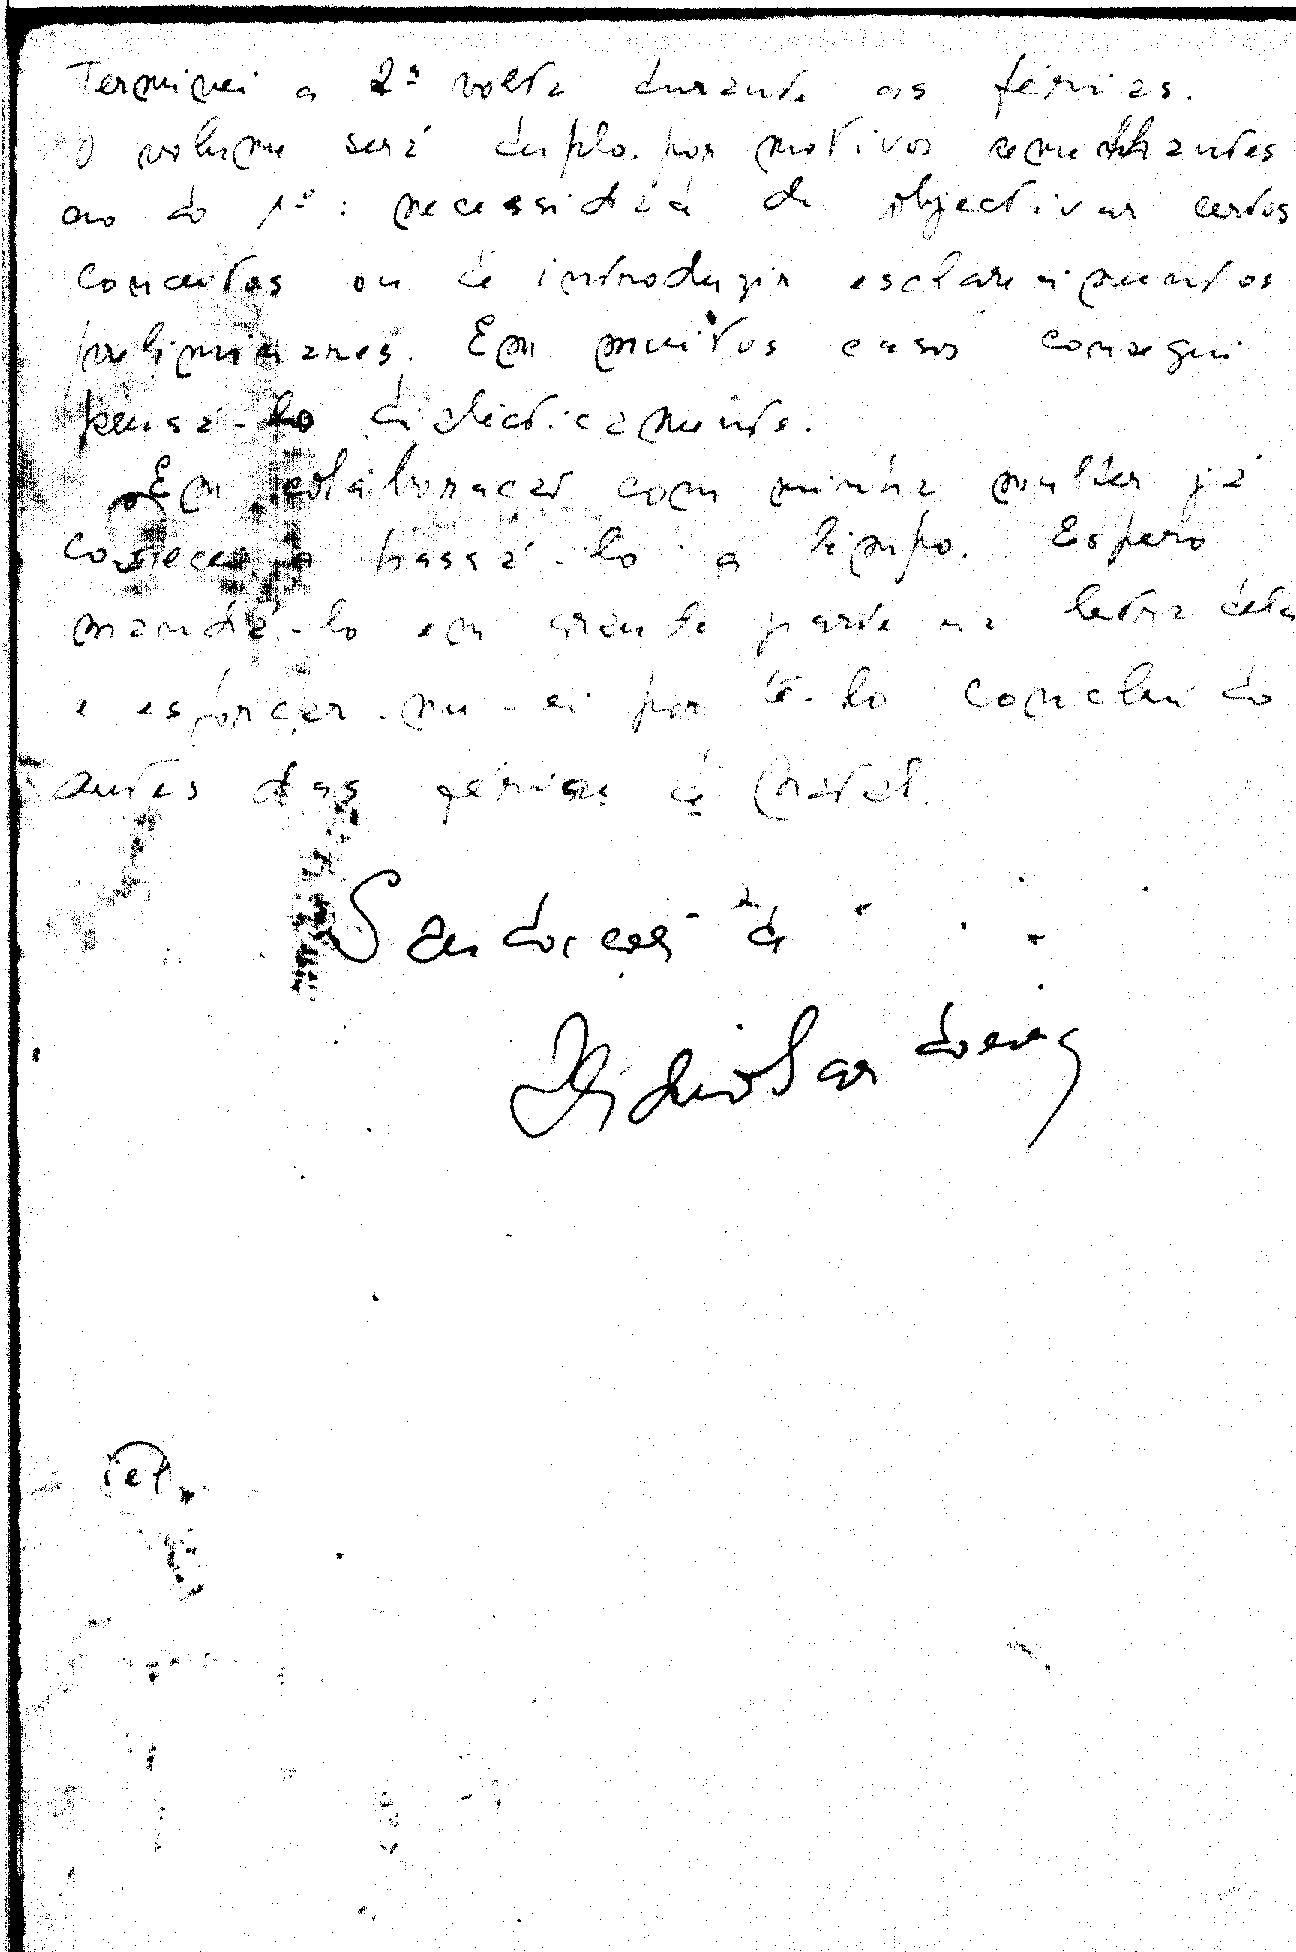 Terminei a 2ª volta durante as férias.
O volume será duplo por motivos semelhantes
ao do 1º: necessidade de objectivar certos
conceitos ou de introduzir esclarecimentos
preliminares. Em muitos casos consegui
pensá-lo dialecticamente.
Em colaboração com minha mulher já
comecei a passá-lo a limpo. Espero
mandá-lo em grande parte na letra dela
e esforçar-me-ei por tê-lo concluído
antes das férias de Natal.
Saudades de
Sardo